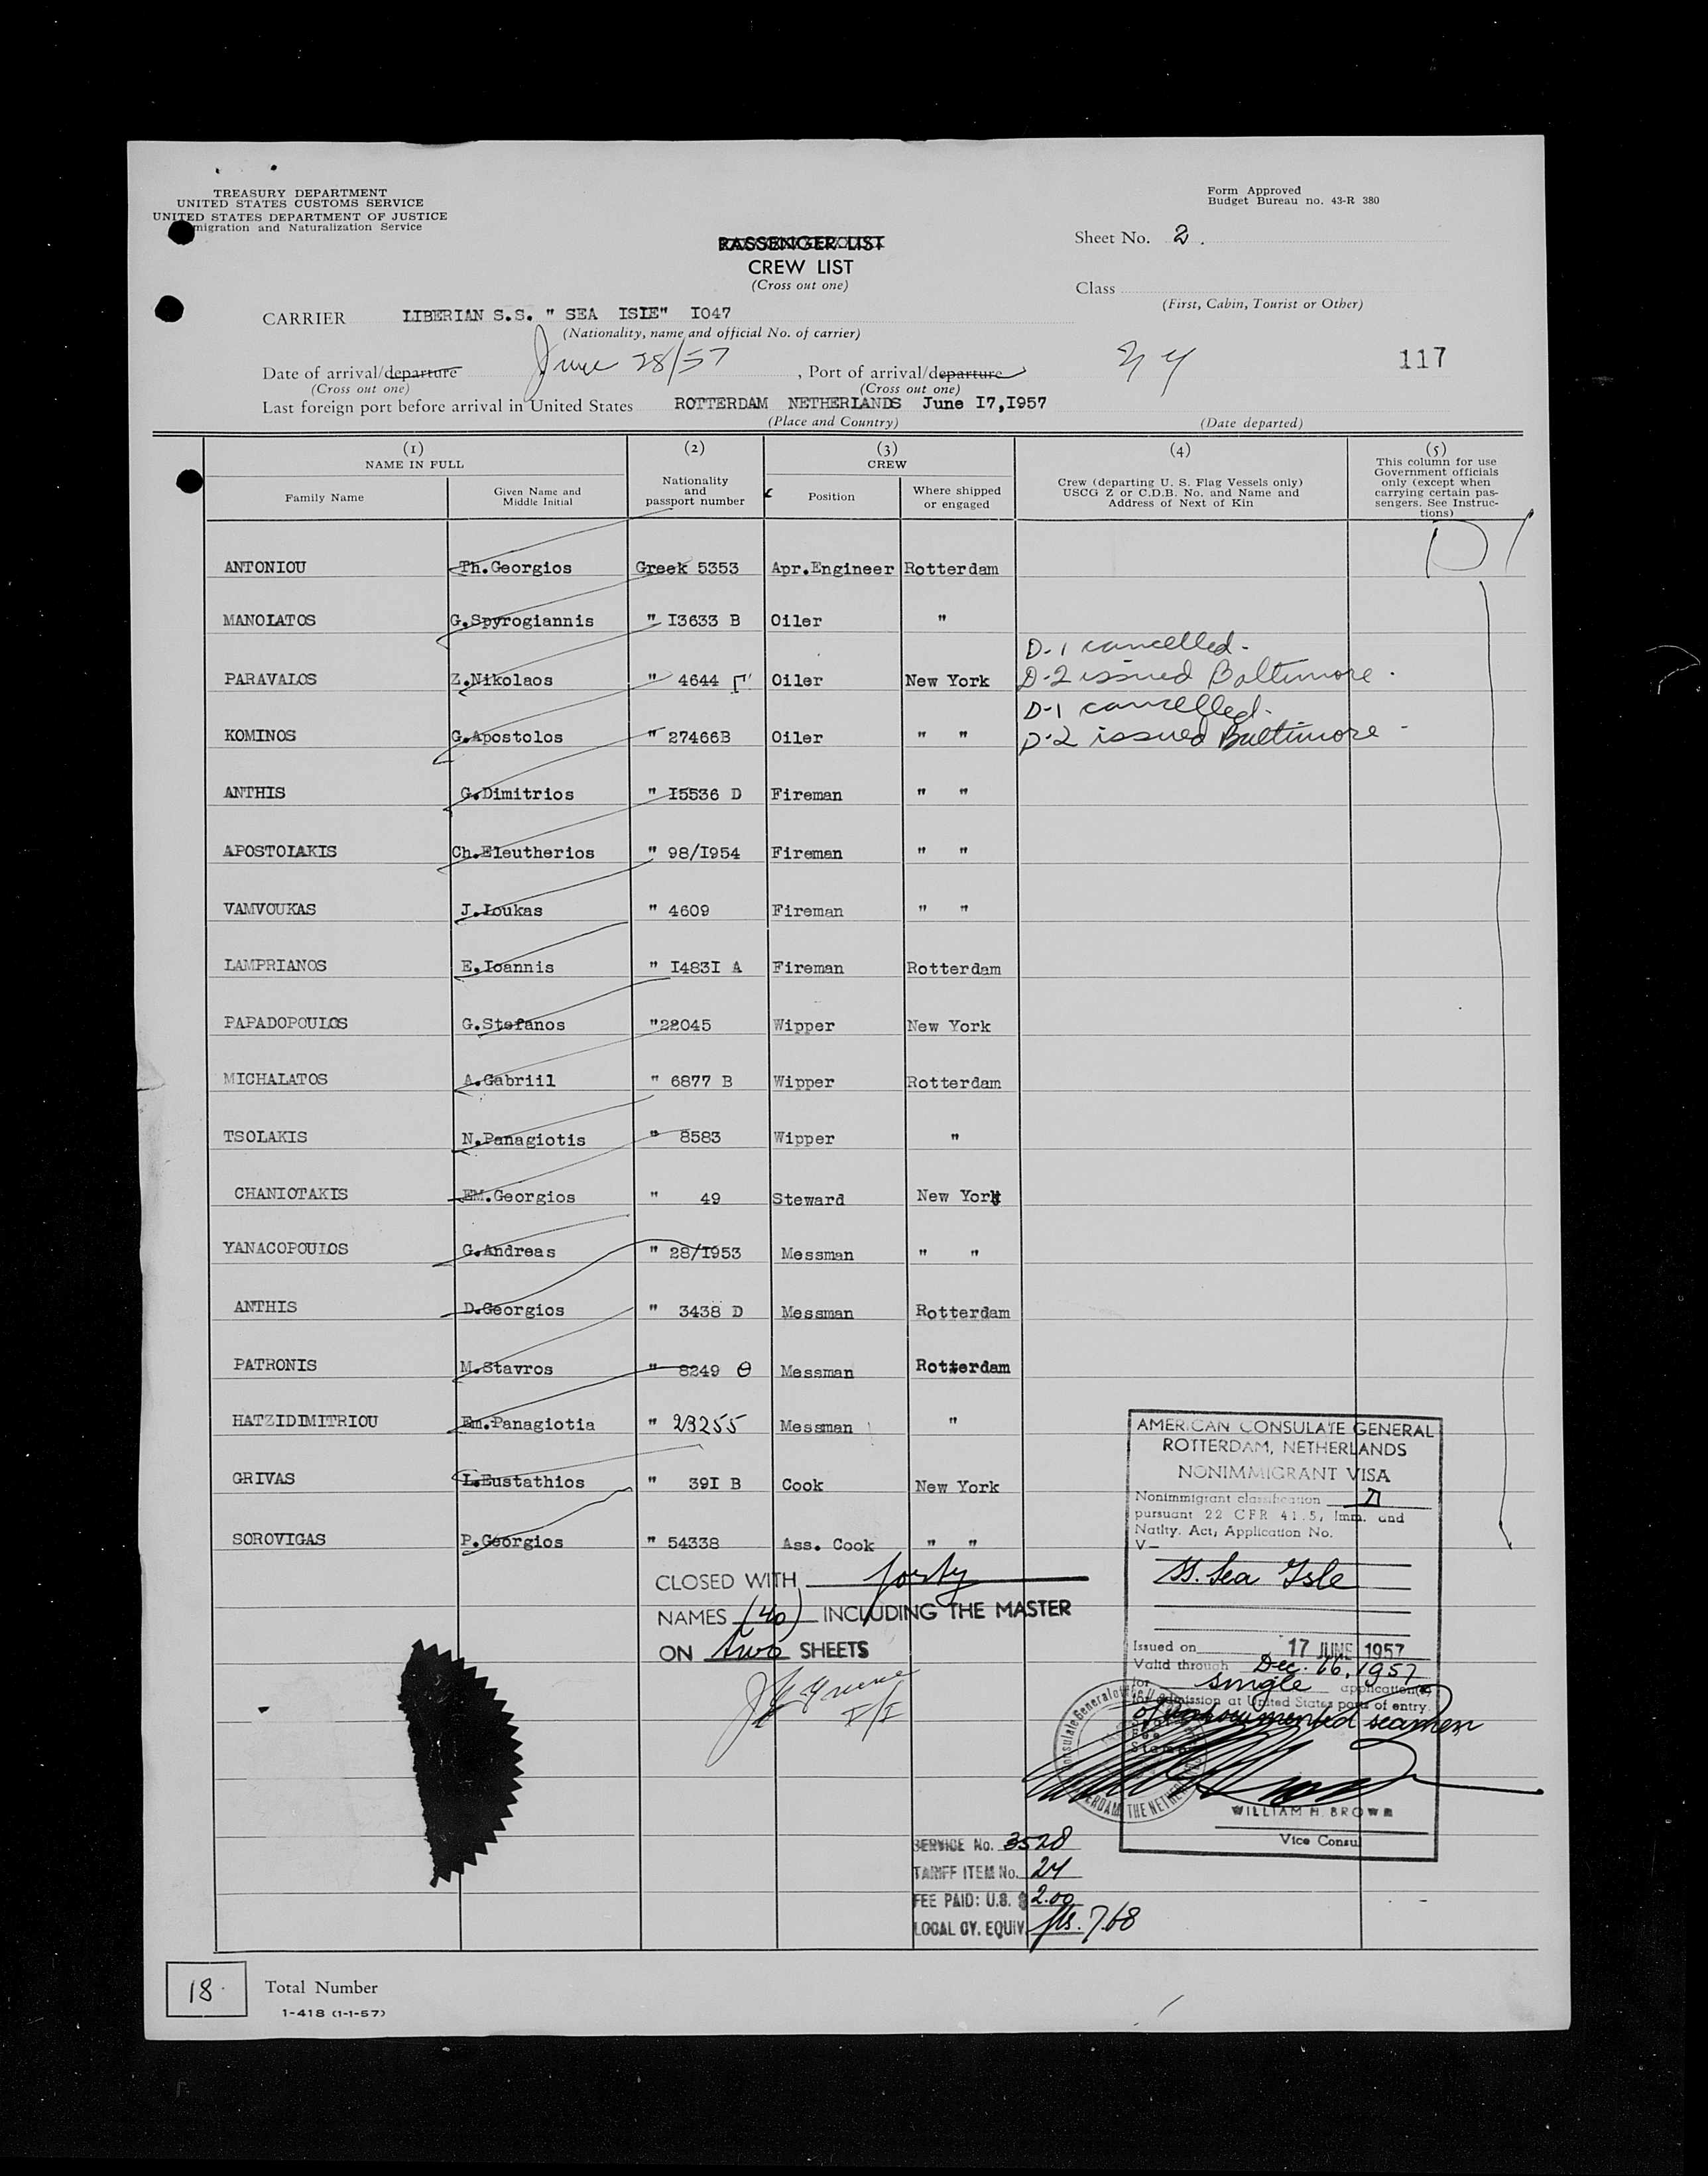 TREASURY DEPARTMENT
UNITED STATES CUSTOMS SERVICE
UNITED STATES DEPARTMENT OF JUSTICE
migration and Naturalization Service
Form Approved
Budget Bureau no. 43-R 380
PASSENGER LIST
CREW LIST
(Cross out one)
Sheet No. 2.
Class
(First, Cabin, Tourist or Other)
CARRIER LIBERIAN S.S. " SEA ISLE" I047
(Nationality, name and official No. of carrier)
Date of arrival/departure June 28/57, Port of arrival/departure NY
117
(Cross out one) (Cross out one)
Last foreign port before arrival in United States ROTTERDAM NETHERLANDS June I7,I957
(Place and Country) (Date departed)
(1) (2) (3) (4) (5)
NAME IN FULL
Family Name
Given Name and Middle Initial
Nationality and passport number
CREW
Position
Where shipped or engaged
Crew (departing U. S. Flag Vessels only)
USCG Z or C.D.B. No. and Name and
Address of Next of Kin
This column for use
Government officials
only (except when
carrying certain pas-
sengers. See Instruc-
tions)
D1
ANTONIOU Th.Georgios Greek 5353 Apr.Engineer Rotterdam
MANOLATOS G.Spyrogiannis " I3633 B Oiler "
D-1 cancelled.
PARAVALOS Z.Nikolaos " 4644 Γ Oiler New York D-2 issued Baltimore.
D-1 cancelled.
KOMINOS G.Apostolos " 27466B Oiler " " D-2 issued Baltimore
ANTHIS G.Dimitrios " I5536 D Fireman " "
APOSTOLAKIS Ch.Eleutherios " 98/I954 Fireman " "
VAMVOUKAS J.Loukas " 4609 Fireman " "
LAMPRIANOS E.Ioannis " I483I A Fireman Rotterdam
PAPADOPOULOS G.Stefanos "22045 Wipper New York
MICHALATOS A.Gabriil " 6877 B Wipper Rotterdam
TSOLAKIS N.Panagiotis " 8583 Wipper "
CHANIOTAKIS EM.Georgios " 49 Steward New York
YANACOPOULOS G.Andreas " 28/I953 Messman " "
ANTHIS D.Georgios " 3438 D Messman Rotterdam
PATRONIS M.Stavros " 8249 Θ Messman Rotterdam
HATZIDIMITRIOU Em.Panagiotia " 23255 Messman "
GRIVAS L.Eustathios " 39I B Cook New York
SOROVIGAS P.Georgios " 54338 Ass. Cook " "
CLOSED WITH forty
NAMES (40) INCLUDING THE MASTER
ON two SHEETS
AMERICAN CONSULATE GENERAL
ROTTERDAM, NETHERLANDS
NONIMMIGRANT VISA
Nonimmigrant classification D
pursuant 22 CFR 41.5, Imm. and
Natlty. Act, Application No.
V—
SS. Sea Isle
Issued on 17 JUNE 1957
Valid through Dec. 16, 1957
for single application(s)
for admission at United States ports of entry.
of undocumented seamen
WILLIAM H. BROWN
Vice Consul
SERVICE No. 3528
TARIFF ITEM No. 24
FEE PAID: U.S. $ 2.00
LOCAL CY. EQUIV. fls. 7.68
18. Total Number
1-418 (1-1-57)